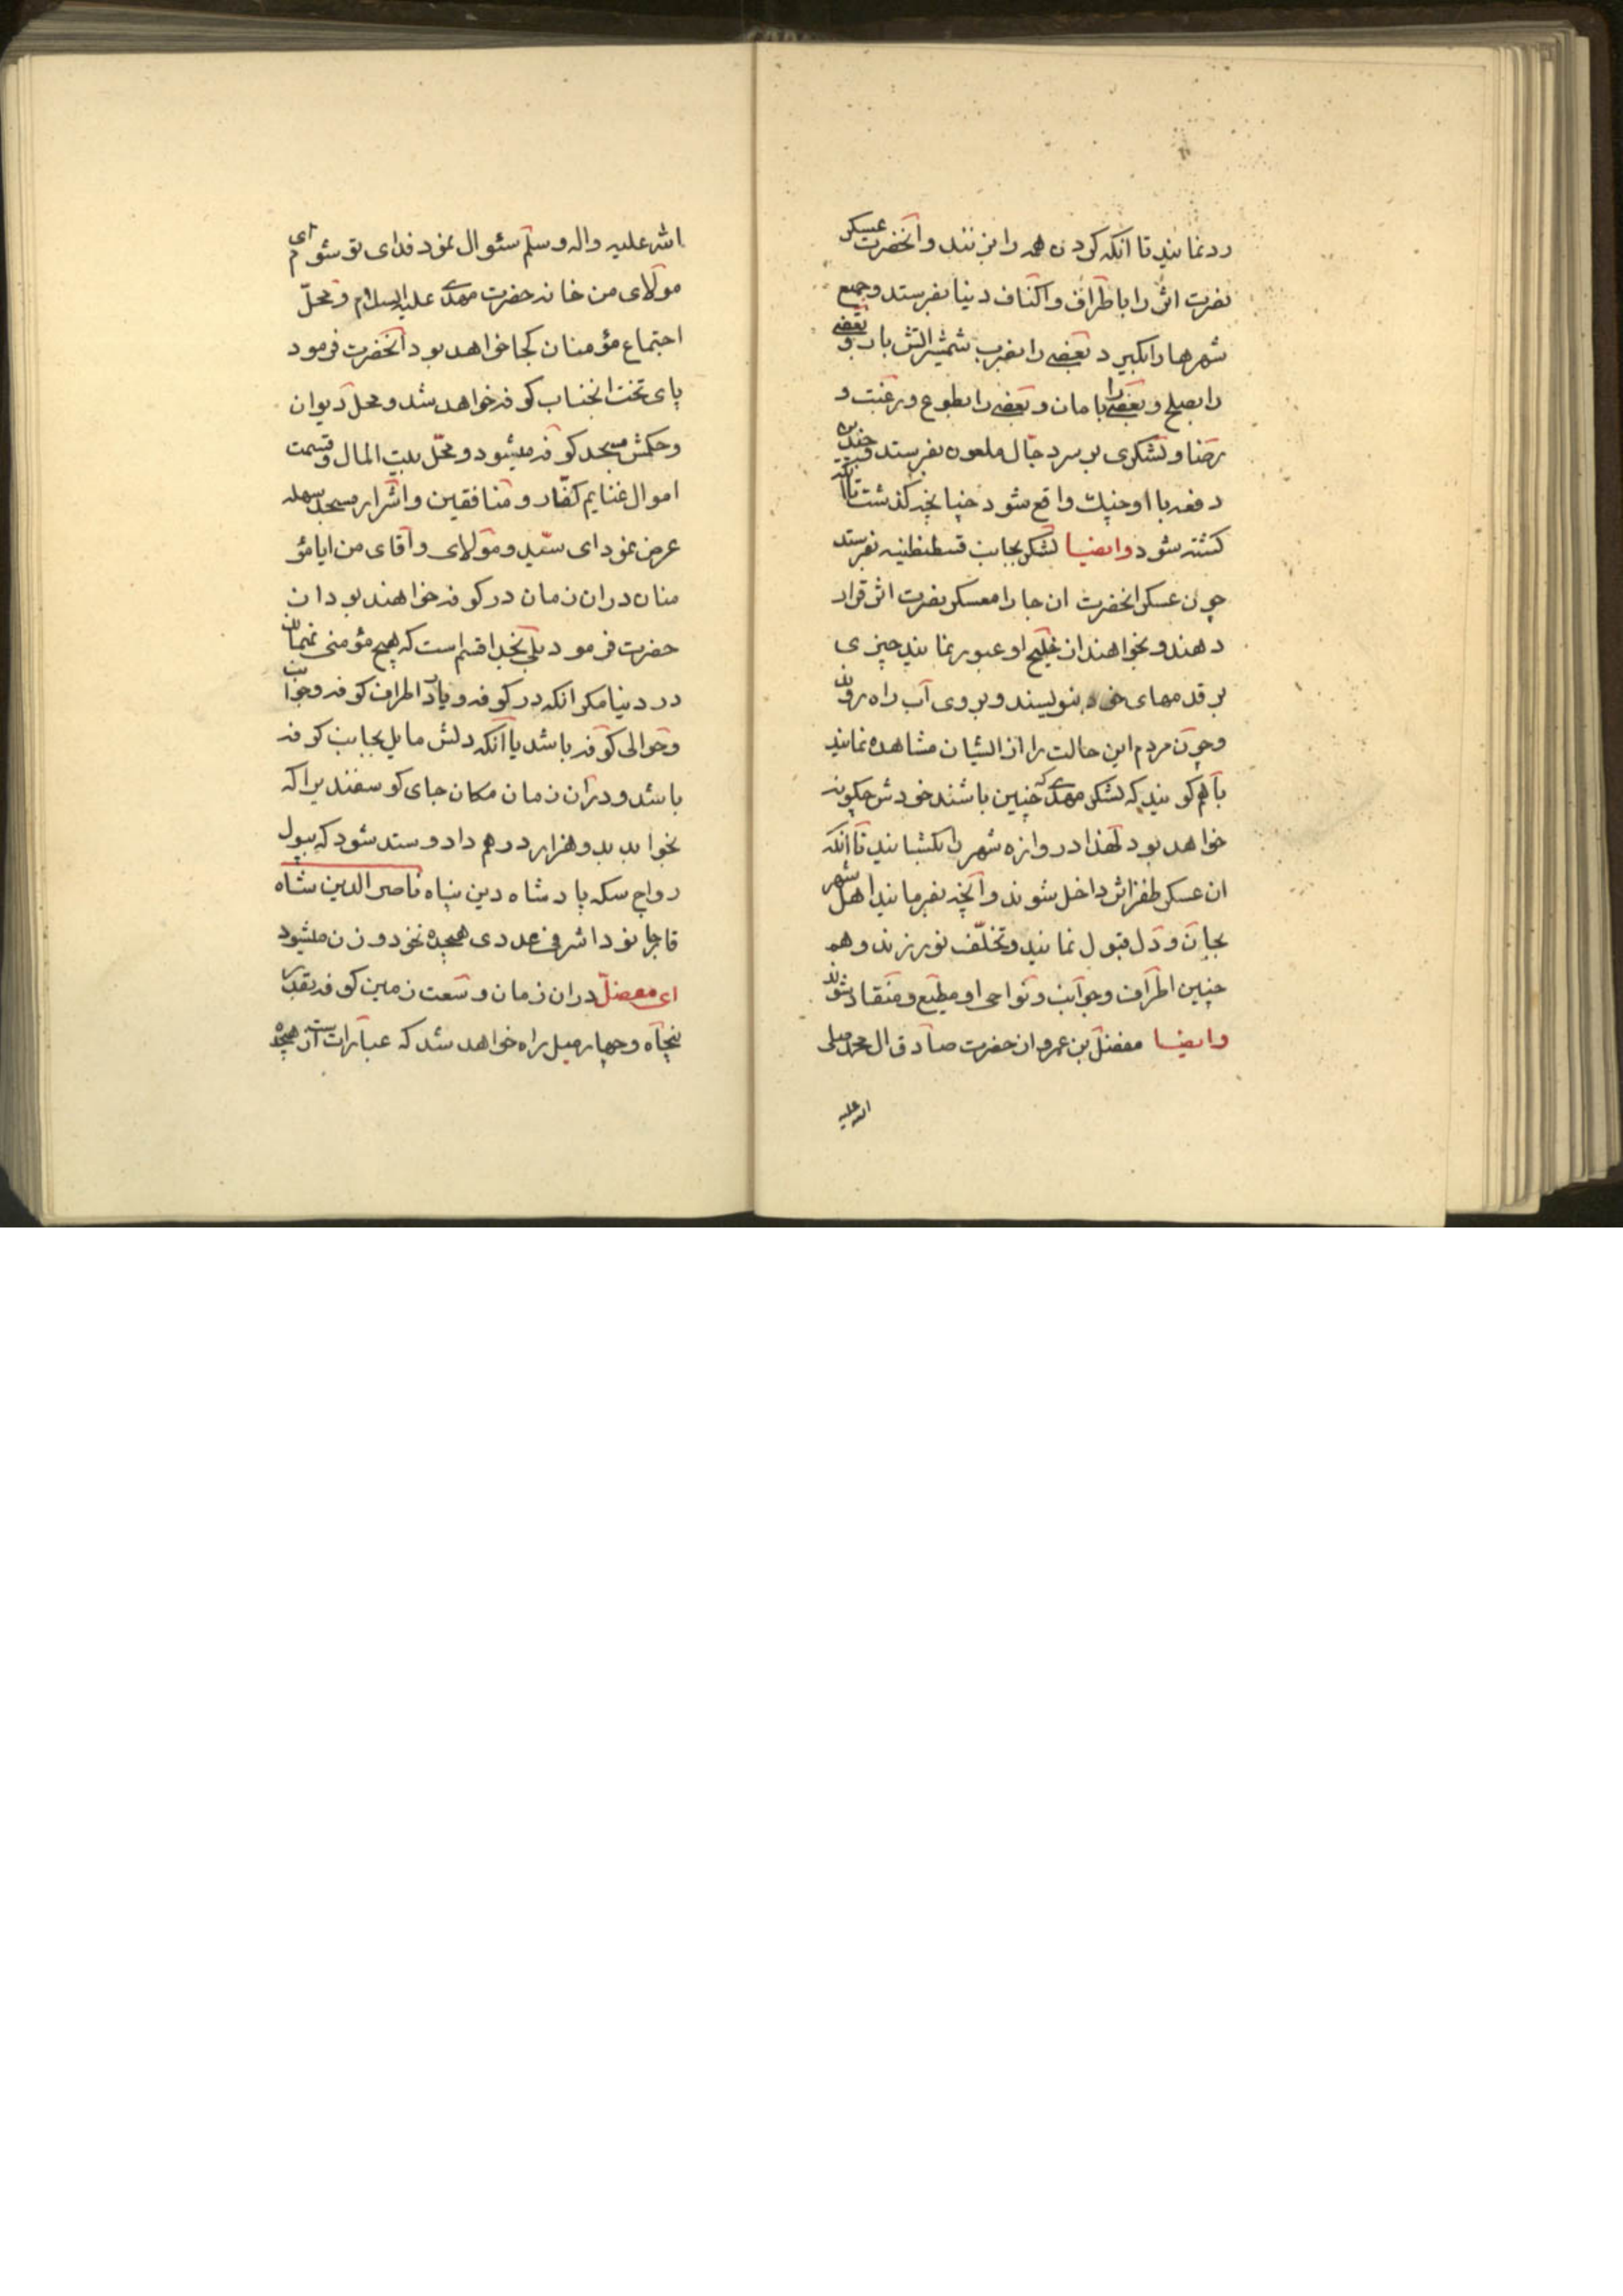 رد نمایند تا آنکه گردن همه را بزنند و آنحضرت عسکر
نصرت اثر را باطراف و اکناف دنیا بفرستد و جمیع
شهرها را بگیرد بعضی را بضرب شمشیر آتش بار و بعضی
را بصلح و بعضی را بامان و بعضی را بطوع و رغبت و
رضا و لشکری بر سر دجال ملعون بفرستد و چندین
دفعه با او جنگ واقع شود چنانچه گذشت تا آنکه
کشته شود وایضا لشکر بجانب قسطنطنیه بفرستد
چون عسکر انحضرت ان جا را معسکر نصرت اثر قرار
دهند و بخواهند از خلیج او عبور نمایند چیزی
بر قدمهای خود بنویسند و بروی آب راه روند
و چون مردم این حالت را از ایشان مشاهده نمایند
باهم گویند که لشکر مهدی که چنین باشند خودش چگونه
خواهد بود لهذا دروازه شهر را بگشایند تا آنکه
ان عسکر ظفر اثر داخل شوند و آنچه بفرمایند اهل شهر
بجان و دل قبول نمایند و تخلّف نورزند و هم
چنین اطراف و جوانب و نواحی او مطیع و منقاد شوند
وایضا مفضل بن عمرو از حضرت صادق ال محمد صلی
الله علیه
الله علیه واله وسلّم سئوال نمود فدای تو شوم ای
مولای من خانه حضرت مهدی علیه السلام و محلّ
اجتماع مؤمنان کجا خواهد بود آنحضرت فرمود
پای تخت انجناب کوفه خواهد شد و محل دیوان
و حکمش مسجد کوفه میشود و محلّ بیت المال و قسمت
اموال غنایم کفّار و منافقین و اشرار مسجد سهله
عرض نمود ای سیّد و مولای و آقای من ایا مؤ
منان دران زمان در کوفه خواهند بود ان
حضرت فرمود بلی بخدا قسم است که هیچ مؤمنی نماند
در دنیا مگر انکه در کوفه و یا در اطراف کوفه و جوانب
و حوالی کوفه باشد یا آنکه دلش مایل بجانب کوفه
باشد و دران زمان مکان جای گوسفندی را که
بخوابد بدو هزار درهم داد و ستد شود که بپول
رواج سکه پادشاه دین پناه ناصر الدین شاه
قاجار نود اشرفی عددی هیجده نخود وزن میشود
ای مفضلّ دران زمان وسعت زمین کوفه بقدر
پنجاه و چهار میل راه خواهد شد که عبارتست از هیجده